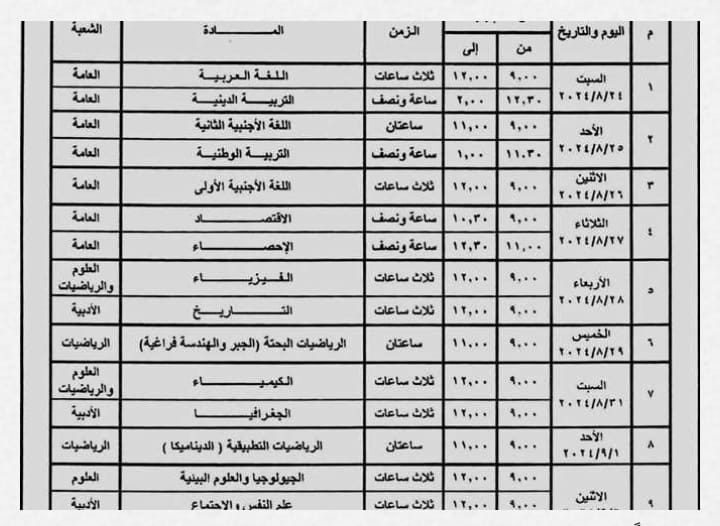 م اليوم والتاريخ من إلى الزمن المـــــــادة الشعبة
١ السبت ٢٠٢٤/٨/٢٤ ٩,٠٠ ١٢,٠٠ ثلاث ساعات اللـغـة الـعـربـيـة العامة
١٢,٣٠ ٢,٠٠ ساعة ونصف التربيــة الدينيــة العامة
٢ الأحد ٢٠٢٤/٨/٢٥ ٩,٠٠ ١١,٠٠ ساعتان اللغة الأجنبية الثانية العامة
١١,٣٠ ١,٠٠ ساعة ونصف التربيـة الوطنيـة العامة
٣ الاثنين ٢٠٢٤/٨/٢٦ ٩,٠٠ ١٢,٠٠ ثلاث ساعات اللغة الأجنبية الأولى العامة
٤ الثلاثاء ٢٠٢٤/٨/٢٧ ٩,٠٠ ١٠,٣٠ ساعة ونصف الاقتصـــــاد العامة
١١,٠٠ ١٢,٣٠ ساعة ونصف الإحصـــــاء العامة
٥ الأربعاء ٢٠٢٤/٨/٢٨ ٩,٠٠ ١٢,٠٠ ثلاث ساعات الـفـيـزيـــاء العلوم والرياضيات
٩,٠٠ ١٢,٠٠ ثلاث ساعات التـــــاريـــخ الأدبية
٦ الخميس ٢٠٢٤/٨/٢٩ ٩,٠٠ ١١,٠٠ ساعتان الرياضيات البحتة (الجبر والهندسة فراغية) الرياضيات
٧ السبت ٢٠٢٤/٨/٣١ ٩,٠٠ ١٢,٠٠ ثلاث ساعات الكيميـــــاء العلوم والرياضيات
٩,٠٠ ١٢,٠٠ ثلاث ساعات الجغرافيـــــا الأدبية
٨ الأحد ٢٠٢٤/٩/١ ٩,٠٠ ١١,٠٠ ساعتان الرياضيات التطبيقية ( الديناميكا ) الرياضيات
٩ الاثنين ٩,٠٠ ١٢,٠٠ ثلاث ساعات الجيولوجيا والعلوم البيئية العلوم
٩,٠٠ ١٢,٠٠ ثلاث ساعات علم النفس والاجتماع الأدبية